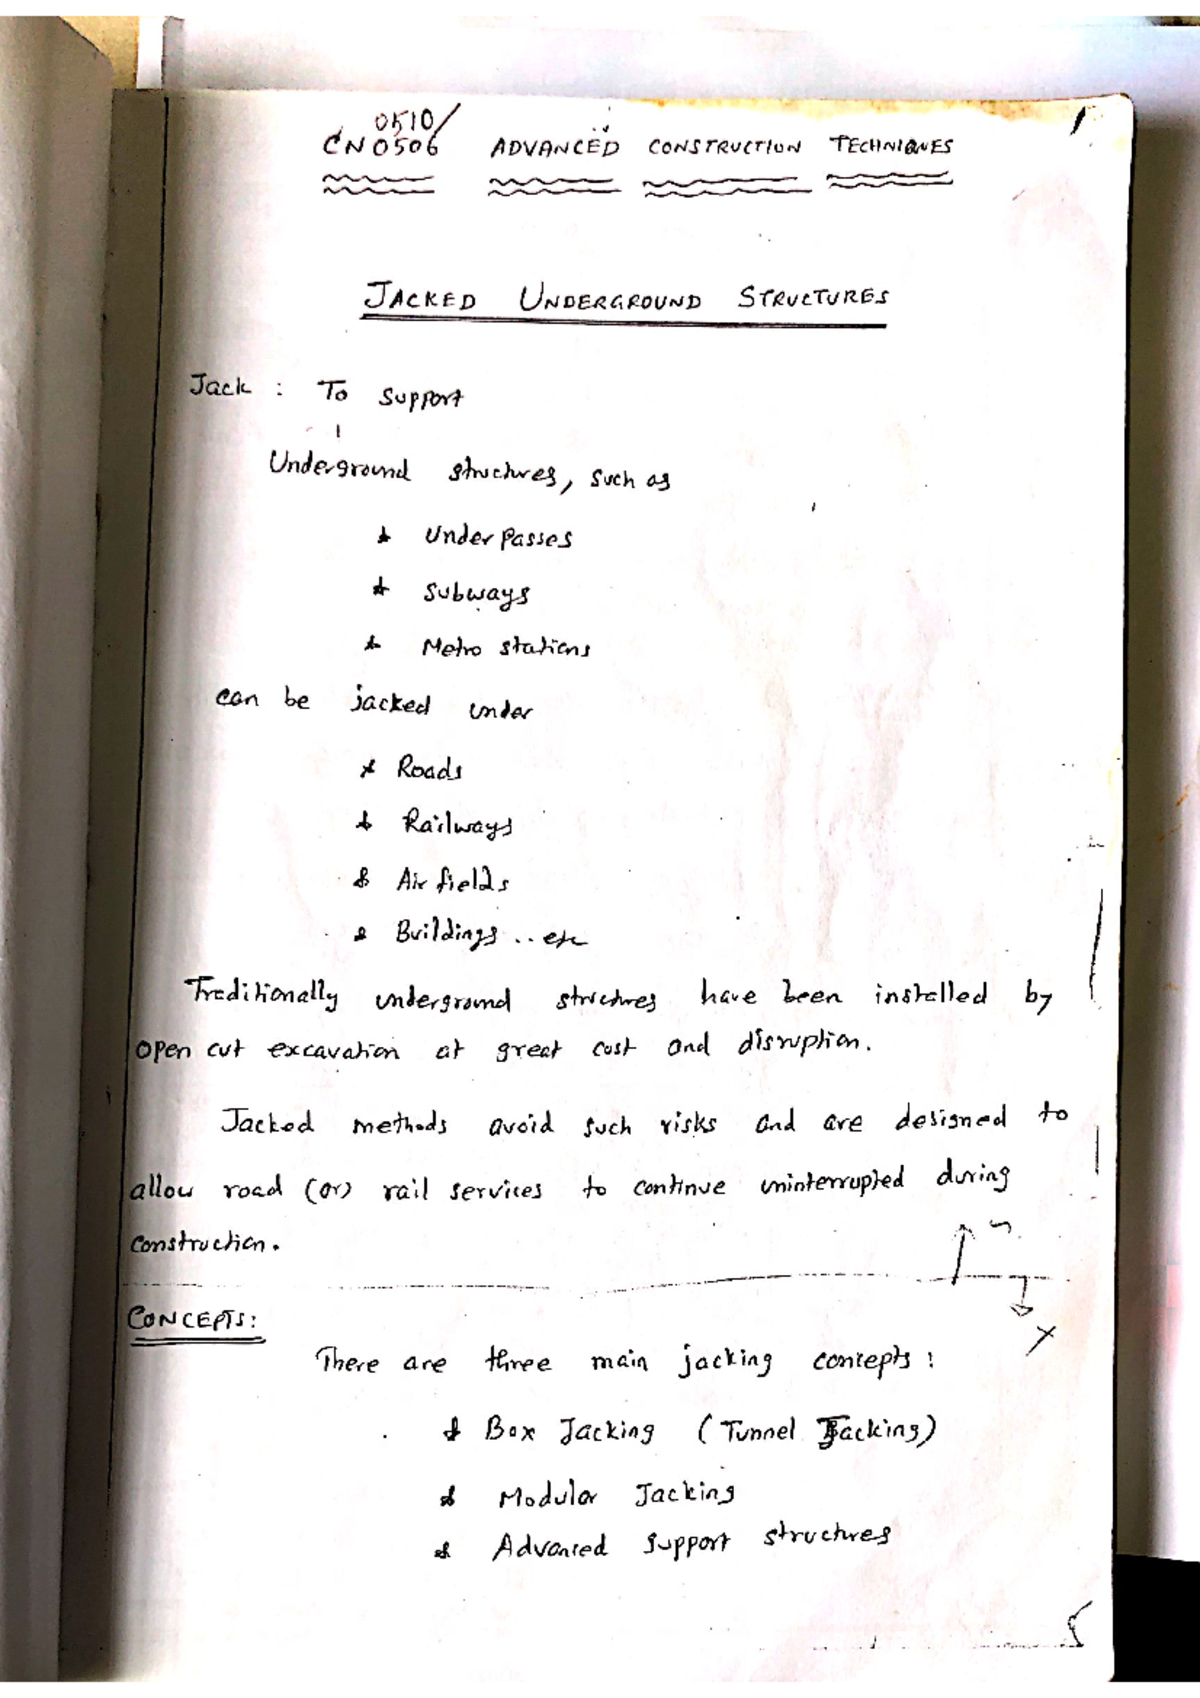 0510/
CN0506 ADVANCED CONSTRUCTION TECHNIQUES
1
JACKED UNDERGROUND STRUCTURES
Jack : To support
Underground structures, such as
* Under passes
* Subways
* Metro stations
can be jacked under
* Roads
* Railways
* Air fields
* Buildings .. etc
Traditionally underground structures have been installed by
open cut excavation at great cost and disruption.
Jacked methods avoid such risks and are designed to
allow road (or) rail services to continue uninterrupted during
construction.
CONCEPTS:
There are three main jacking concepts :
* Box Jacking (Tunnel Jacking)
* Modular Jacking
* Advanced support structures